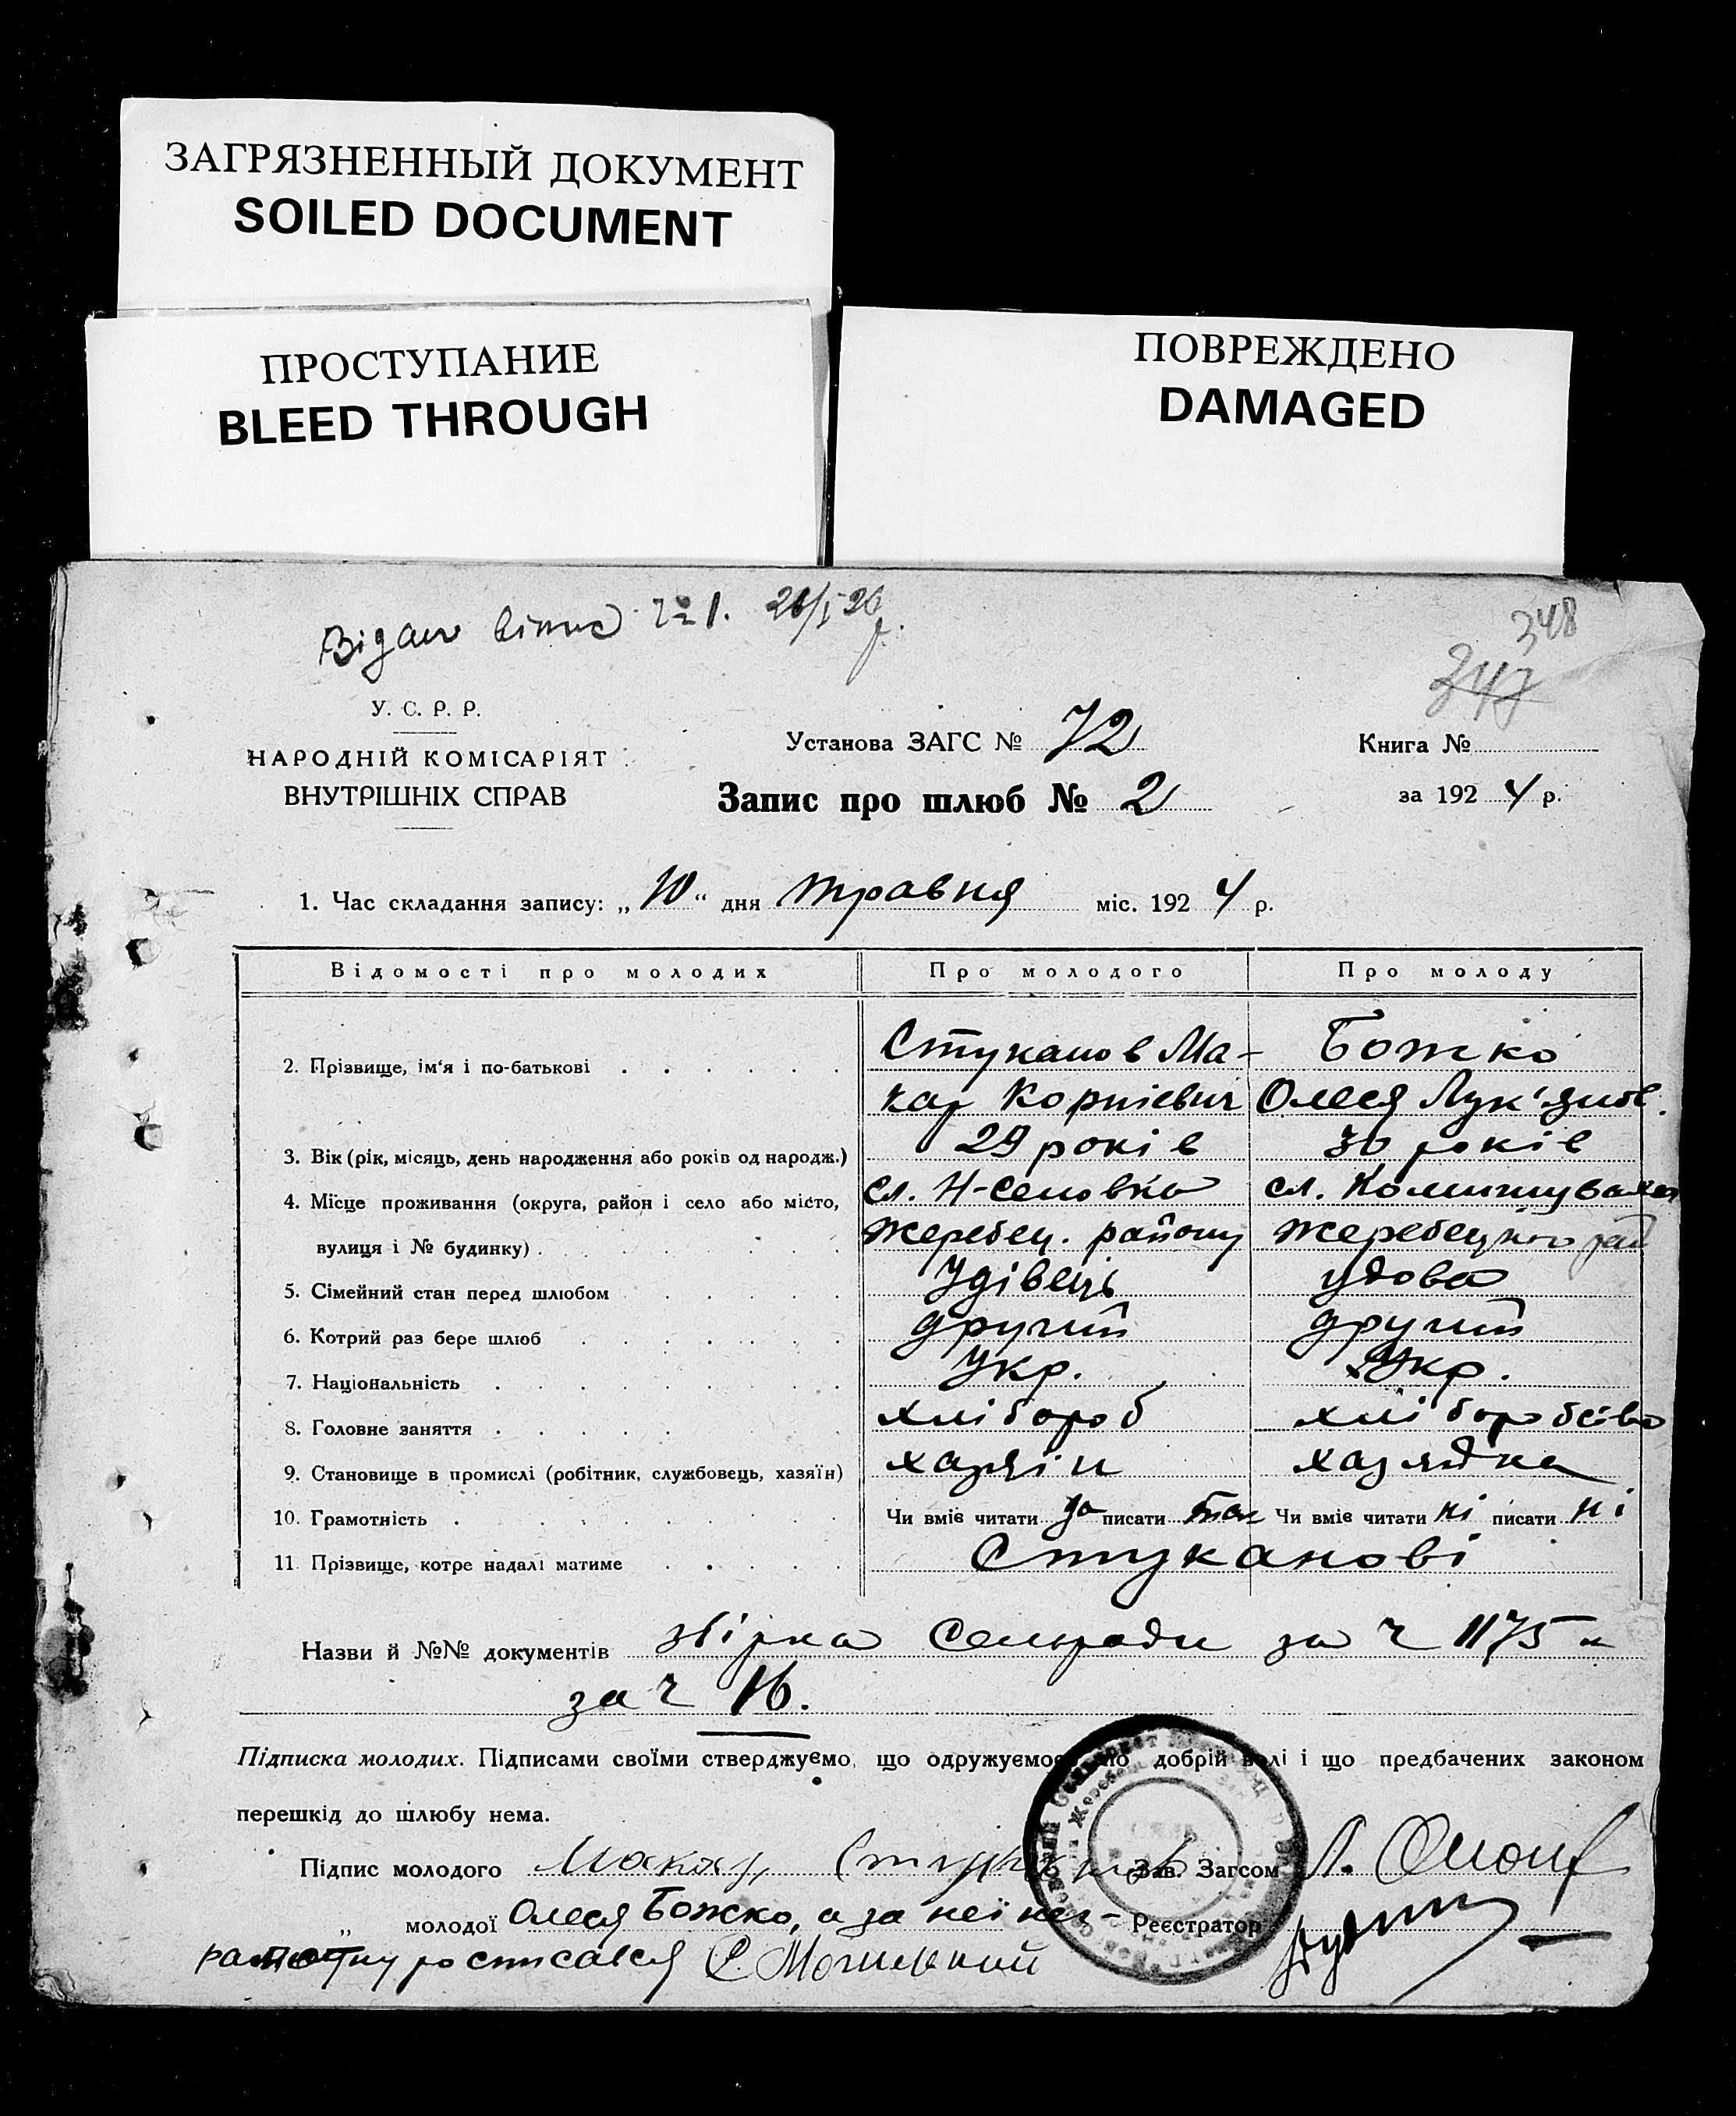 ЗАГРЯЗНЕННЫЙ ДОКУМЕНТ
SOILED DOCUMENT
ПРОСТУПАНИЕ
BLEED THROUGH
ПОВРЕЖДЕНО
DAMAGED
348
347
У. С. Р. Р.
НАРОДНІЙ КОМІСАРІЯТ
ВНУТРІШНІХ СПРАВ
Установа ЗАГС № 72
Запис про шлюб № 2
Книга №
за 1924 р.
1. Час складання запису: „10“ дня травня міс. 1924 р.
Відомості про молодих Про молодого Про молоду
2. Прізвище, ім'я і по-батькові Стуканов Ма- Божко
кар Корнієвич Олеся Лук'янов.
3. Вік (рік, місяць, день народження або років од народж.) 29 років 30 років
4. Місце проживання (округа, район і село або місто, сл. сл.
вулиця і № будинку) Жеребец. району Жеребецького рай
5. Сімейний стан перед шлюбом Удівець удова
6. Котрий раз бере шлюб другий другий
7. Національність Укр. Укр.
8. Головне заняття хлібороб хліборобство
9. Становище в промислі (робітник, службовець, хазяїн) хазяїн хазяйка
10. Грамотність Чи вміє читати писати так Чи вміє читати ні писати ні
11. Прізвище, котре надалі матиме Стуканові
Назви й №№ документів Сельради за ч 1175 и
за ч 16.
Підписка молодих. Підписами своїми стверджуємо, що одружуємось по добрій волі і що предбачених законом
перешкід до шлюбу нема.
Підпис молодого Макар Зав. Загсом
„ молодої Олеся Божко, а за неї нег- Реєстратор
рамотну росписався